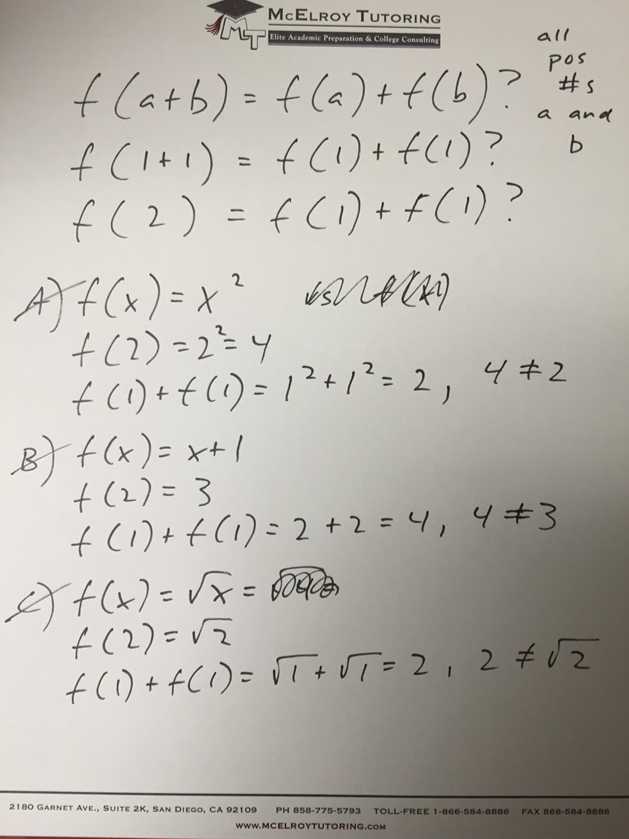 McElroy Tutoring
MT
Elite Academic Preparation & College Consulting
all
pos
#s
a and
b
f(a+b) = f(a)+f(b)?
f(1+1) = f(1)+f(1)?
f(2) = f(1)+f(1)?
A) f(x)=x²
f(2)=2²=4
f(1)+f(1)=1²+1²=2, 4≠2
B) f(x)=x+1
f(2)=3
f(1)+f(1)=2+2=4, 4≠3
C) f(x)=√x=
f(2)=√2
f(1)+f(1)=√1+√1=2, 2≠√2
2180 Garnet Ave., Suite 2K, San Diego, CA 92109 PH 858-775-5793 Toll-Free 1-866-584-8886 FAX 866-584-8886
www.mcelroytutoring.com